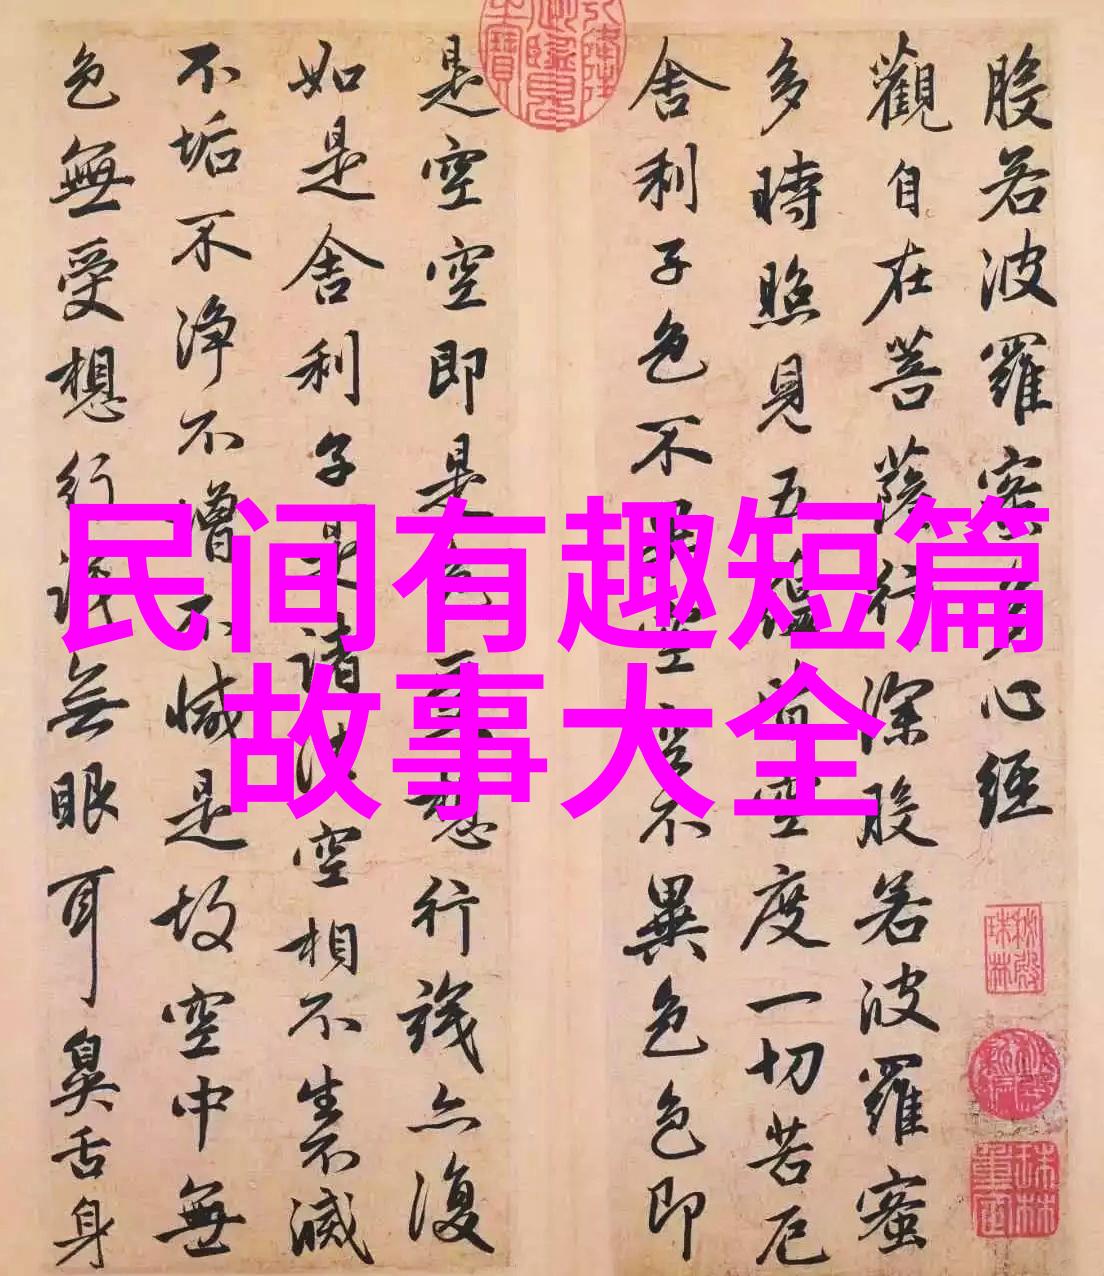 民间有趣短篇
故事大全
般若波羅密多心經
觀自在菩薩行深般若波羅蜜
多時照見五蘊皆空度一切苦厄
舍利子色不異空空不異色色即
是空空即是色受想行識亦復
如是舍利子是諸法空相不生不滅
不垢不淨不增不減是故空中無
色無受想行識無眼耳鼻舌身